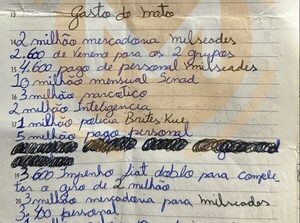 13 Gasto do mato
14 2 milhão mercadoria milseades
2.600 de veneno para os 2 grupos
15 4.600 pago de personal milseades
10 milhão mensual Senad
16 3 milhão narcotico
2 milhão Inteligencia
17 1 milhão policia Brites Kue
5 milhão pago personal
19 3.600 Impenho fiat doblo para comple-
tar o giro de 2 milhão
20 3 milhão mercadoria para milseades
personal